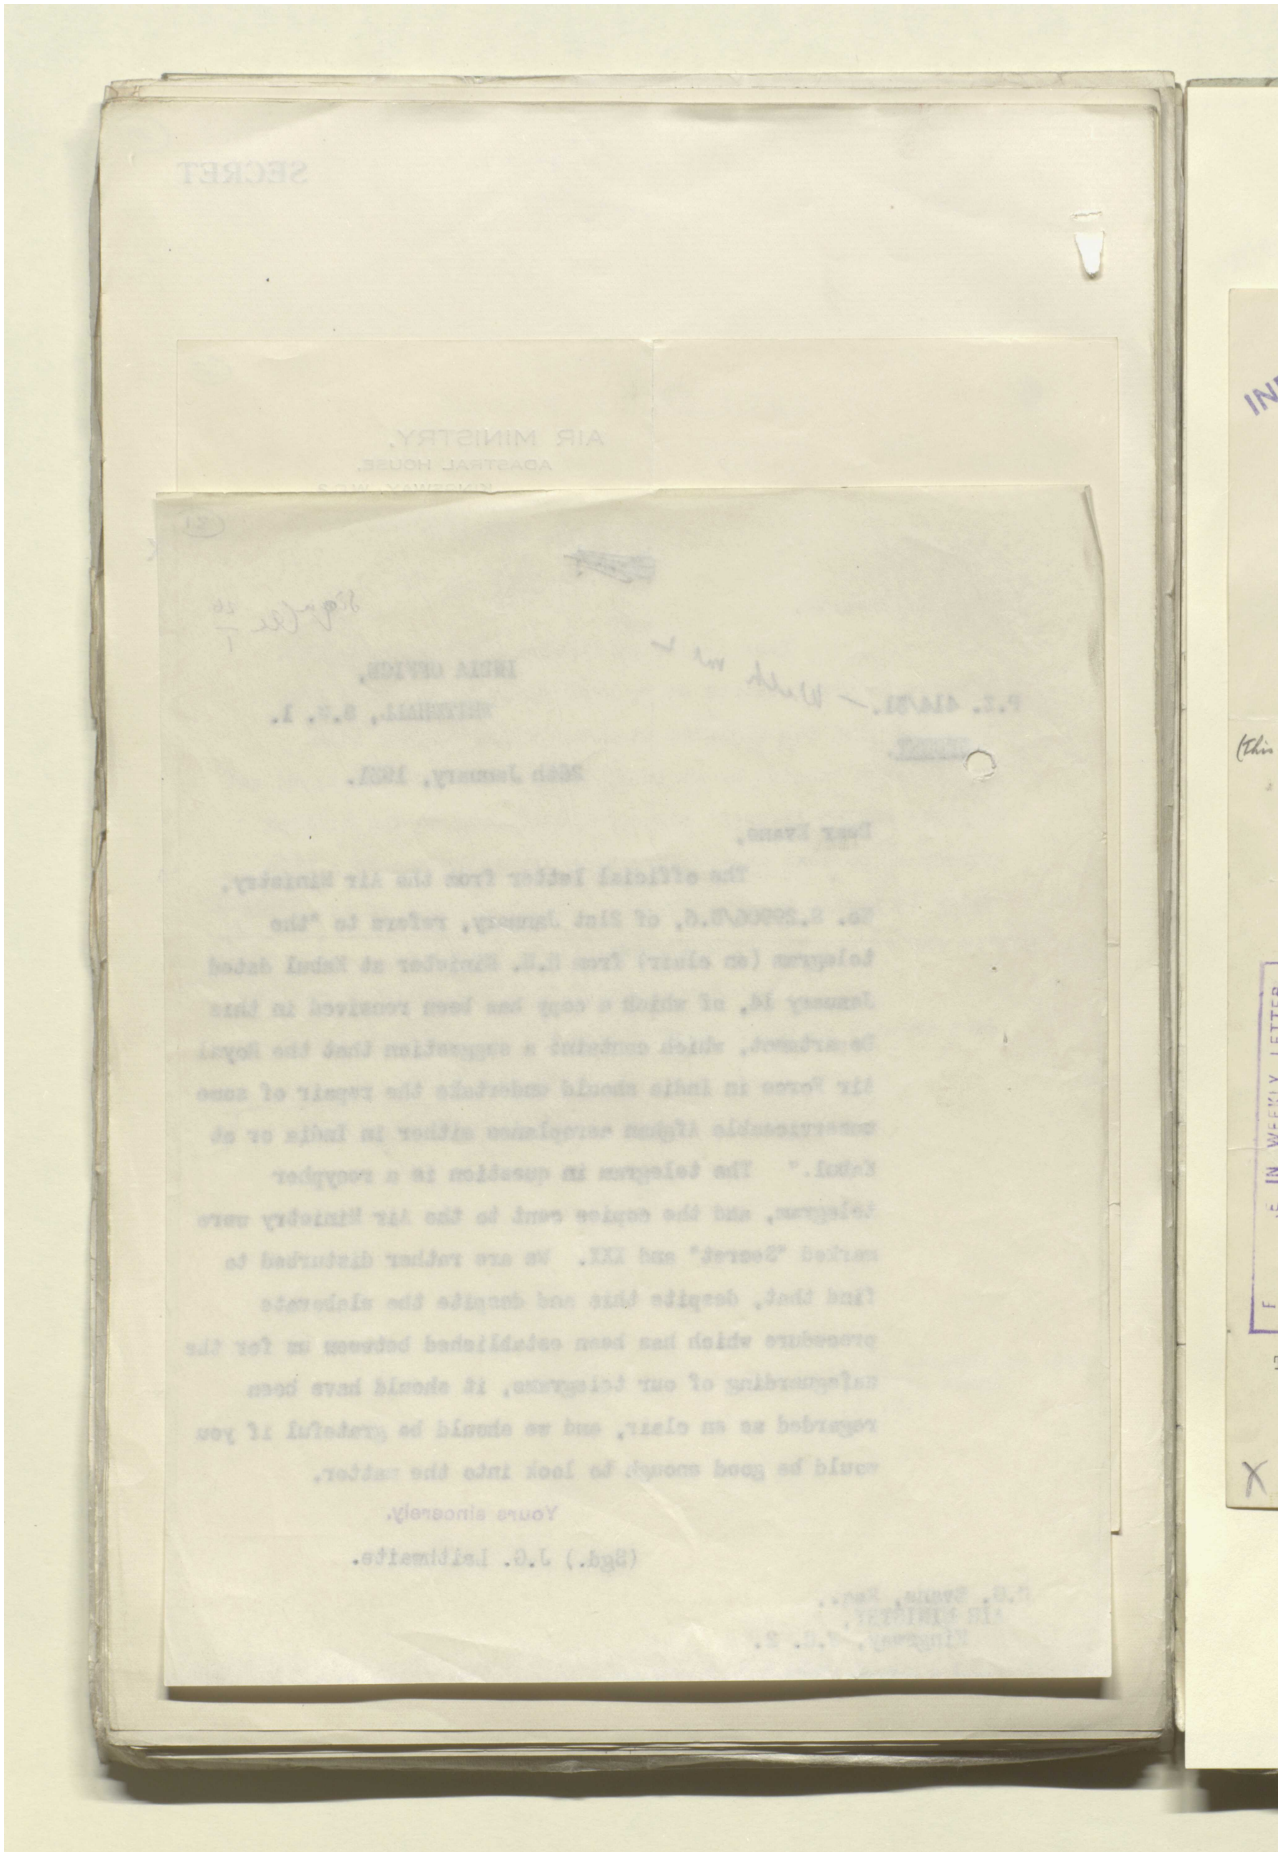 SECRET
AIR MINISTRY,
ADASTRAL HOUSE,
KINGSWAY, W.C.2.
INDIA OFFICE,
WHITEHALL, S.W. 1.
P.Z. 414/31. — With
SECRET.
26th January, 1931.
Dear Evans,
The official letter from the Air Ministry,
No. S.29906/S.6, of 21st January, refers to "the
telegram (en clair) from H.M. Minister at Kabul dated
January 14, of which a copy has been received in this
Department, which contains a suggestion that the Royal
Air Force in India should undertake the repair of some
unserviceable Afghan aeroplanes either in India or at
Kabul." The telegram in question is a recypher
telegram, and the copies sent to the Air Ministry were
marked "Secret" and XXX. We are rather disturbed to
find that, despite this and despite the elaborate
procedure which has been established between us for the
safeguarding of our telegrams, it should have been
regarded as en clair, and we should be grateful if you
would be good enough to look into the matter.
Yours sincerely,
(Sgd.) J.G. Laithwaite.
Evans, Esq.,
AIR MINISTRY,
Kingsway, W.C. 2.
(This
IN WEEKLY LETTER
X